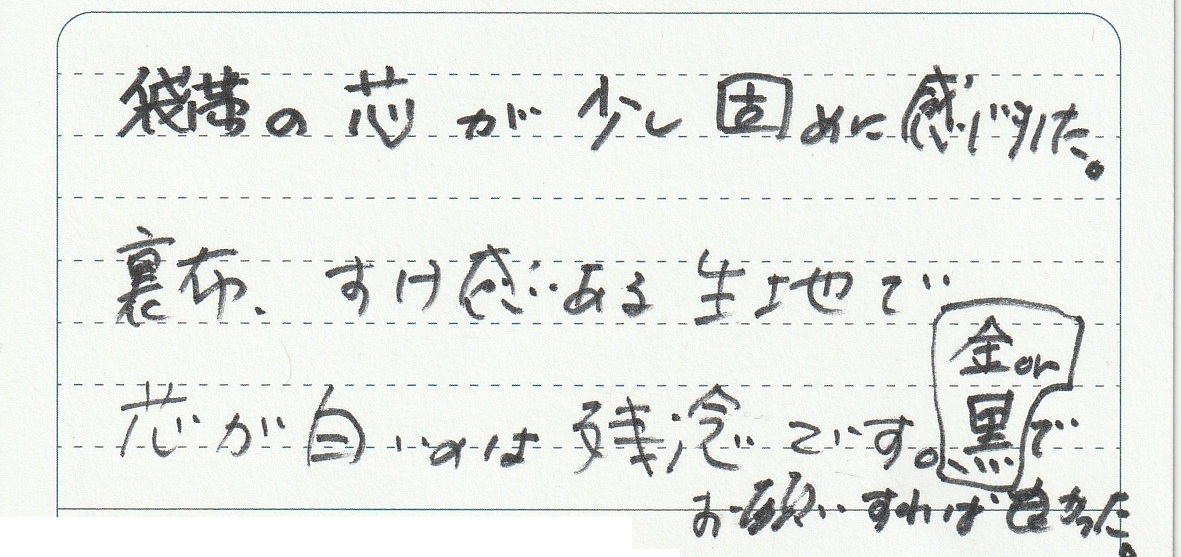 袋帯の芯が少し固めに感じました。
裏布、すけ感ある生地で
芯が白いのは残念です。
金or
黒で
お願いすれば良かった。